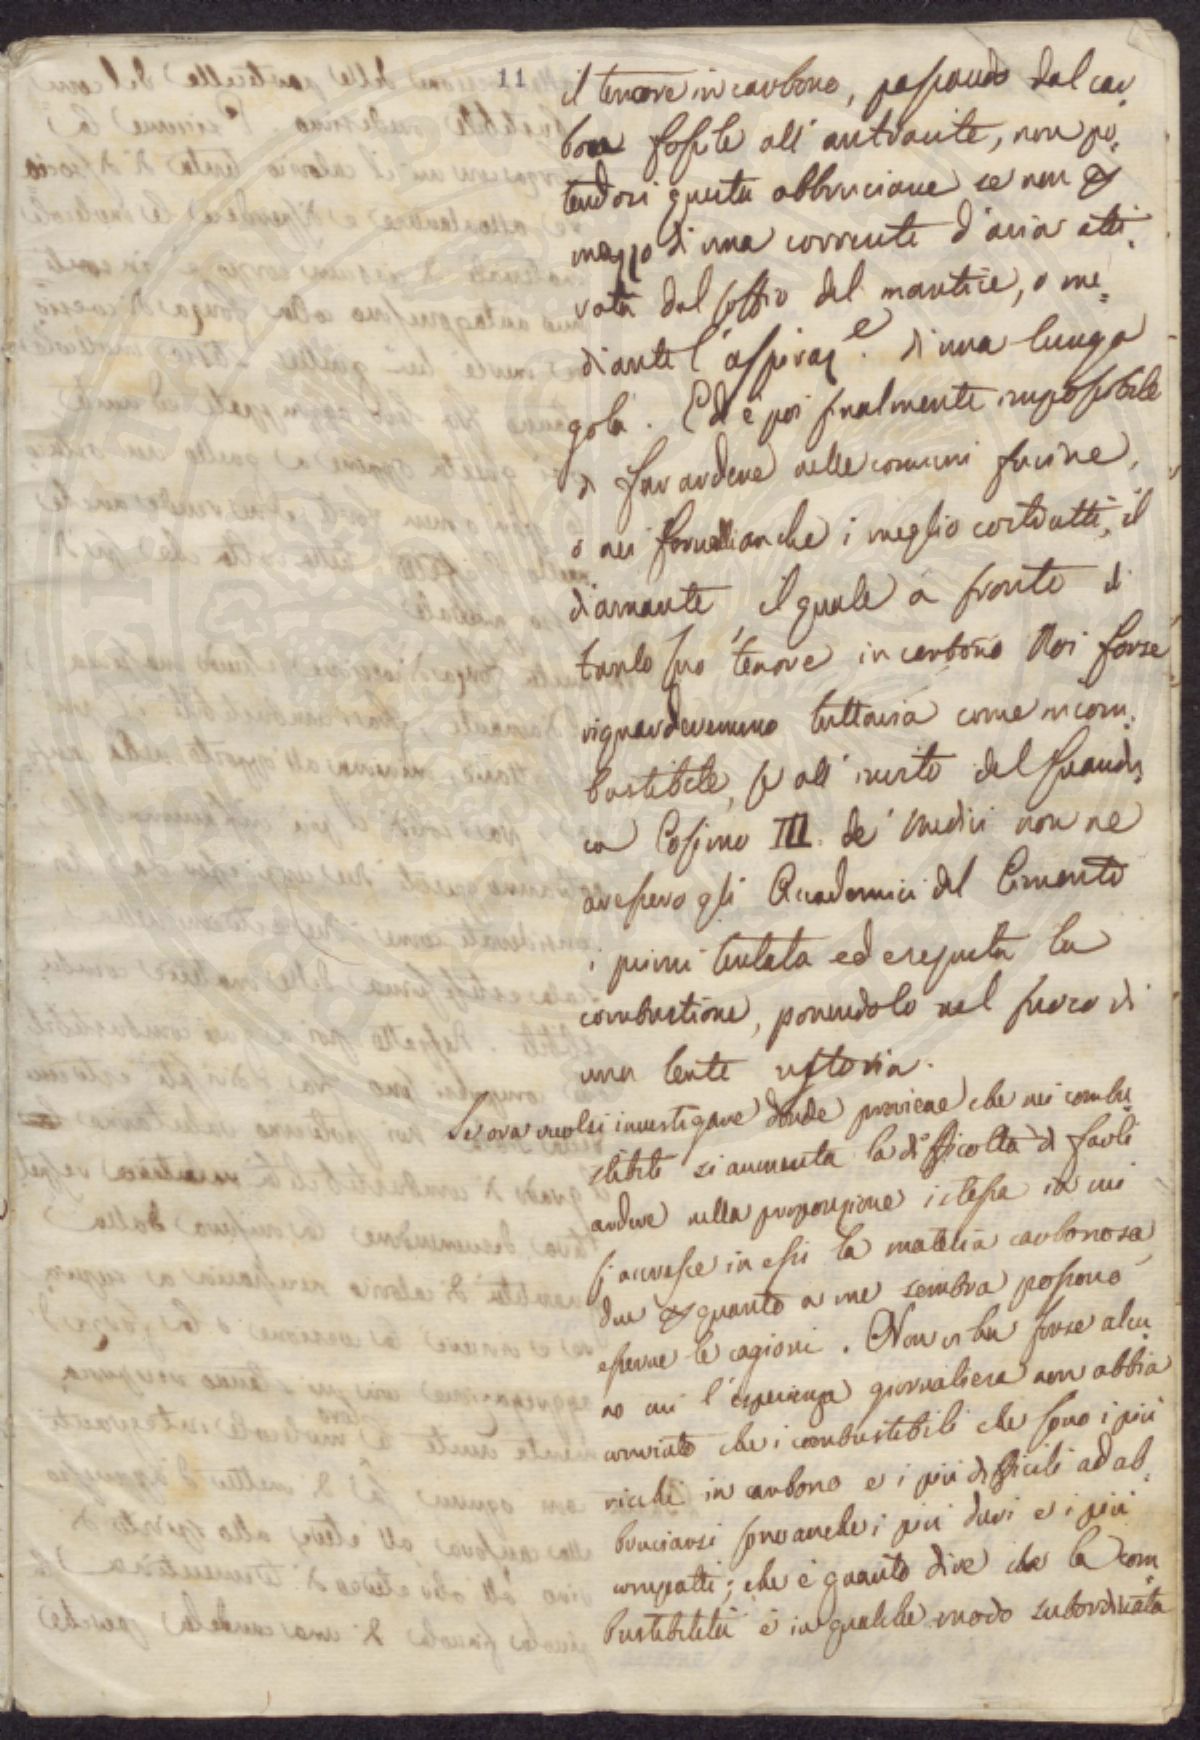 11
il tenore in carbono, passando dal car-
bon fossile all' antracite, non po-
tendosi questa abbruciare se non per
mezzo di una corrente d'aria atti-
vata dal soffio del mantice, o me-
diante l'aspiraze. di una lunga
gola. Ed è poi finalmente impossibile
di far ardere nelle comuni fucine,
o nei fornelli anche i meglio costrutti, il
diamante, il quale a fronte di
tanto suo tenore in carbono Noi forse
riguarderemmo tuttavia come incom-
bustibile, se all' invito del Grandu-
ca Cosimo III. de' Medici non ne
avessero gli Accademici del Cimento
i primi tentata ed eseguita la
combustione, ponendolo nel fuoco di
una lente ustoria.
Se ora vuolsi investigare donde proviene che nei combu-
stibili si aumenta la difficoltà di farli
ardere nella proporzione istessa in cui
s'accresce in essi la materia carbonosa,
due per quanto a me sembra possono
esserne le cagioni. Non vi ha forse alcu-
no cui l'esperienza giornaliera non abbia
convinto che i combustibili che sono i più
ricchi in carbono e i più difficili ad ab-
bruciarsi sono anche i più duri e i più
compatti; che è quanto dire che la com-
bustibilità è in qualche modo subordinata